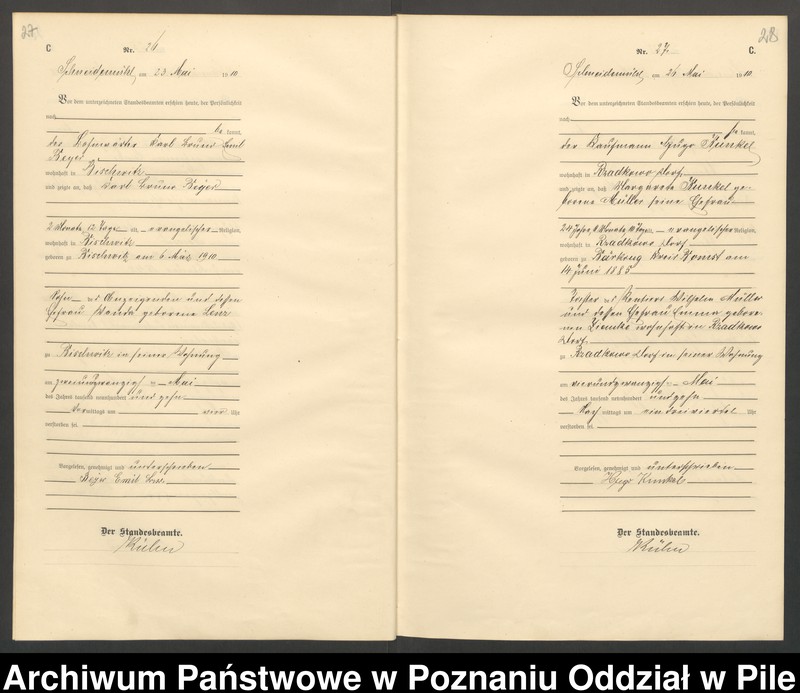 27.
C
Nr. 26
Schneidemühl, am 23. Mai 1910
Vor dem unterzeichneten Standesbeamten erschien heute, der Persönlichkeit
nach
be kannt,
der Carl Bruno Emil
Beyer
wohnhaft in Bischwitz
und zeigte an, daß Carl Bruno Beyer
2 Monate 12 Tage alt, evangelischer Religion,
wohnhaft in Bischwitz
geboren zu Bischwitz am 6. März 1910
Sohn des Anzeigenden und dessen
Ehefrau Wanda geborene Lenz
zu Bischwitz in seiner Wohnung
am zweiundzwanzigsten Mai
des Jahres tausend neunhundert und zehn
Vormittags um vier Uhr
verstorben sei.
Vorgelesen, genehmigt und unterschrieben
Beyer Emil
Der Standesbeamte.
Kühn
28
Nr. 27
C.
Schneidemühl, am 24. Mai 1910
Vor dem unterzeichneten Standesbeamten erschien heute, der Persönlichkeit
nach
be kannt,
der Kaufmann Hugo Kunkel
wohnhaft in Rzadkowo Dorf
und zeigte an, daß Margarete Kunkel ge-
borene Müller seine Ehefrau
24 Jahre, Monate Tage alt, evangelischer Religion,
wohnhaft in Rzadkowo Dorf
geboren zu Kreis Bomst am
14. Juni 1885
Tochter des Rentiers Wilhelm Müller
und dessen Ehefrau Emma gebore-
nen Ziemke wohnhaft in Rzadkowo
Dorf
zu Rzadkowo Dorf in seiner Wohnung
am vierundzwanzigsten Mai
des Jahres tausend neunhundert und zehn
Nachmittags um eindreiviertel Uhr
verstorben sei.
Vorgelesen, genehmigt und unterschrieben
Hugo Kunkel
Der Standesbeamte.
Kühn
Archiwum Państwowe w Poznaniu Oddział w Pile